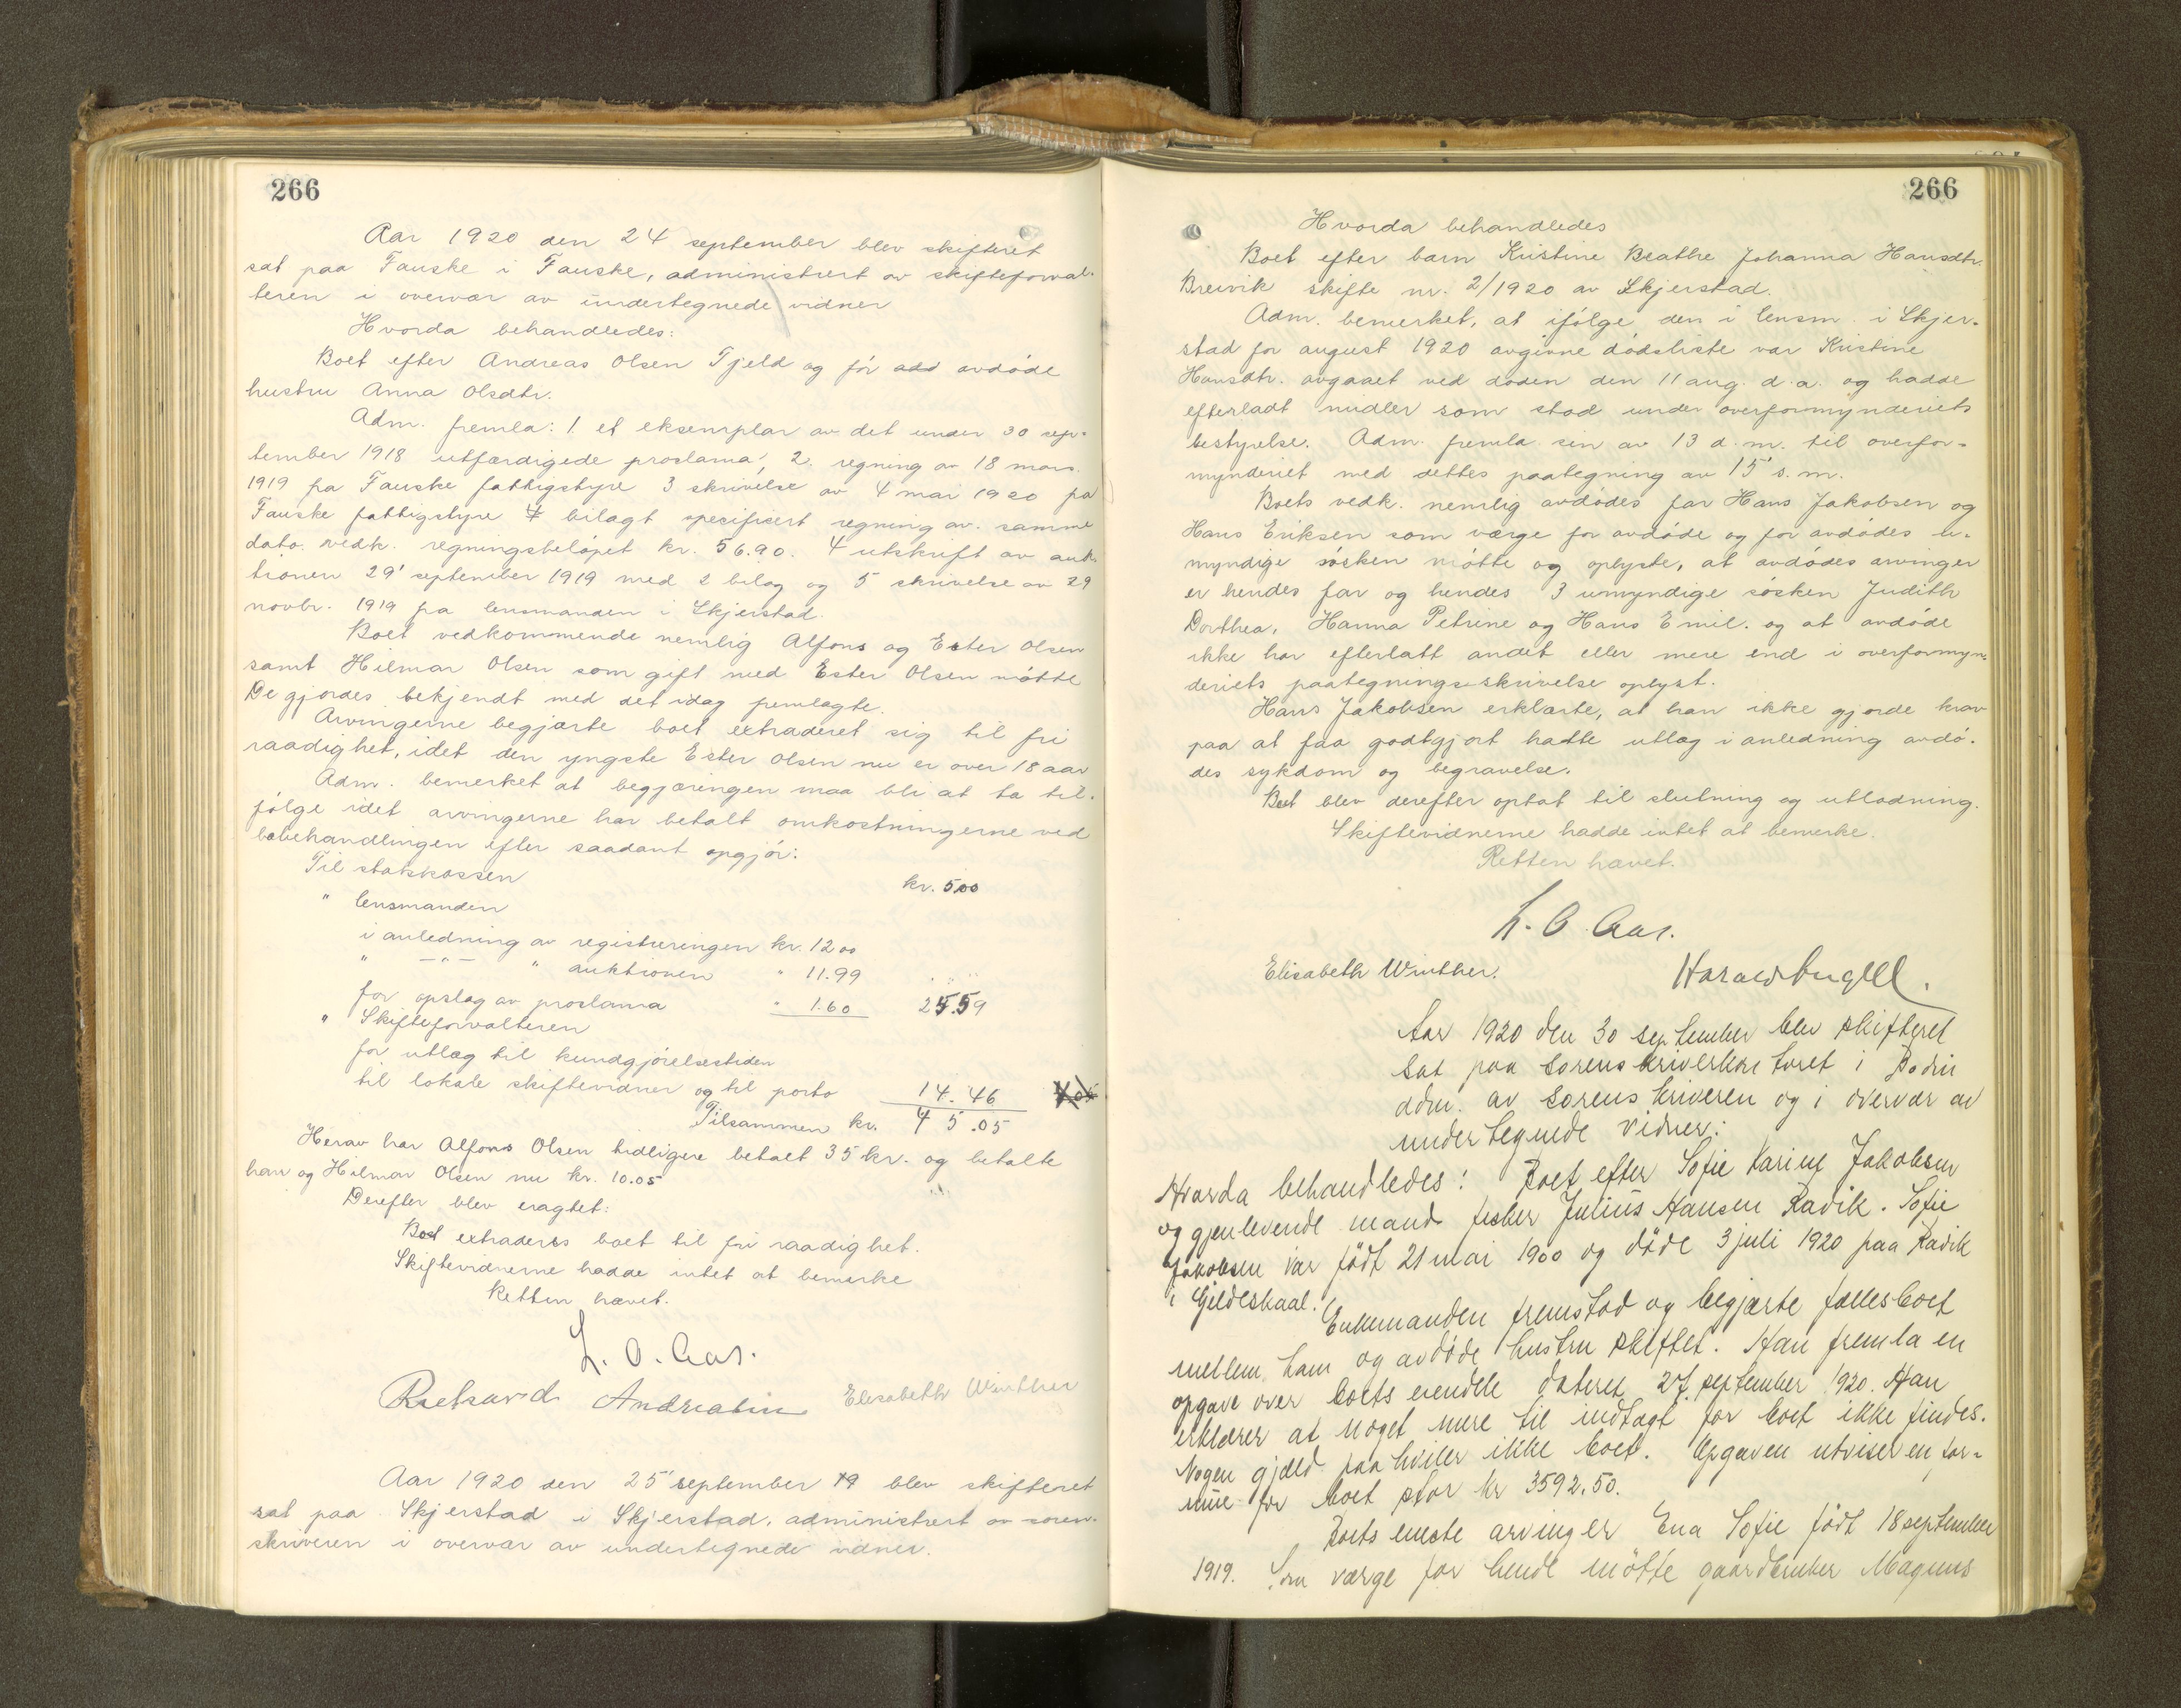 266
Aar 1920 den 24 september blev skifteret
sat paa Fauske i Fauske, administrert av skifteforval-
teren i overvær av undertegnede vidner
Hvorda behandledes:
Boet efter Andreas Olsen Fjeld og før add avdøde
hustru Anna Olsdtr.
Adm. fremla: 1. et eksemplar av det under 30 sep-
tember 1918 utfærdigede proclama, 2. regning av 18 mars
1919 fra Fauske fattigstyre 3 skrivelse av 4 mai 1920 fra
Fauske fattigstyre 4 bilagt specificert regning av samme
dato vedk. regningsbeløpet kr. 56.90. 4 utskrift av auk-
tionen 29' september 1919 med 2 bilag og 5 skrivelse av 29
novbr. 1919 fra lensmanden i Skjerstad.
Boet vedkommende nemlig Alfons og Ester Olsen
samt Hilmar Olsen som gift med Ester Olsen møtte
De gjordes bekjendt med det idag fremlagte.
Arvingerne begjærte boet extraderet sig til fri
raadighet, idet den yngste Ester Olsen nu er over 18 aar
Adm. bemerket at begjæringen maa bli at ta til-
følge idet arvingerne har betalt omkostningerne ved
bobehandlingen efter saadant opgjør:
Til statskassen kr. 5.00
" lensmanden
i anledning av registreringen kr. 12 00
" —"— " auktionen " 11.99
for opslag av proclama " 1.60 25.59
" Skifteforvalteren
for utlæg til kundgjørelsestiden
til lokale skiftevidner og til porto 14.46
Tilsammen kr. 45.05
Herav har Alfons Olsen tidligere betalt 35 kr. og betalte
han og Hilmar Olsen nu kr. 10.05
Derefter blev eragtet:
Boet extraderes boet til fri raadighet.
Skiftevidnerne hadde intet at bemerke
Retten hævet.
L. O. Aas.
Elisabeth Winther
Aar 1920 den 25' september 19 blev skifteret
sat paa Skjerstad i Skjerstad, administrert av soren-
skriveren i overvær av undertegnede vidner.
266
Hvorda behandledes
Boet efter barn Kristine Beathe Johanna Hansdtr.
Breivik skifte nr. 2/1920 av Skjerstad.
Adm. bemerket, at ifølge den i lensm. i Skjer-
stad for august 1920 avgivne dødsliste var Kristine
Hansdtr. avgaaet ved døden den 11 aug. d.a. og hadde
efterladt midler som stod under overformynderiets
bestyrelse. Adm. fremla sin av 13 d.m. til overfor-
mynderiet med dettes paategning av 15' s.m.
Boets vedk. nemlig avdødes far Hans Jakobsen og
Hans Eriksen som værge for avdøde og for avdødes u-
myndige søsken møtte og oplyste, at avdødes arvinger
er hendes far og hendes 3 umyndige søsken Judith
Dorthea, Hanna Petrine og Hans Emil. og at avdøde
ikke har efterlatt andet eller mere end i overformyn-
deriets paategningsskrivelse oplyst.
Hans Jakobsen erklærte, at han ikke gjorde krav
paa at faa godtgjort hatte utlæg i anledning avdø-
des sykdom og begravelse.
Boet blev derefter optat til slutning og utlodning.
Skiftevidnerne hadde intet at bemerke.
Retten hævet.
L. O. Aas.
Elisabeth Winther.
Aar 1920 den 30 september blev skifteret
sat paa sorenskriverkontoret i Bodin
adm. av sorenskriveren og i overvær av
undertegnede vidner:
Hvorda behandledes: Boet efter Sofie Karine Jakobsen
og gjenlevende mand fisker Julius Hansen Ravik. Sofie
Jakobsen var født 21 mai 1900 og døde 3 juli 1920 paa Ravik
i Gildeskaal.
Enkemanden fremstod og begjærte fællesboet
mellem ham og avdøde hustru skiftet. Han fremla en
opgave over boets eiendele dateret 27. september 1920. Han
erklærer at noget mere til indtægt for boet ikke findes.
Nogen gjæld paahviler ikke boet. Opgaven utviser en for-
mue for boet stor kr 3592.50.
Boets eneste arving er Ena Sofie født 18 september
1919. Som værge for hende møtte gaardbruker Magnus